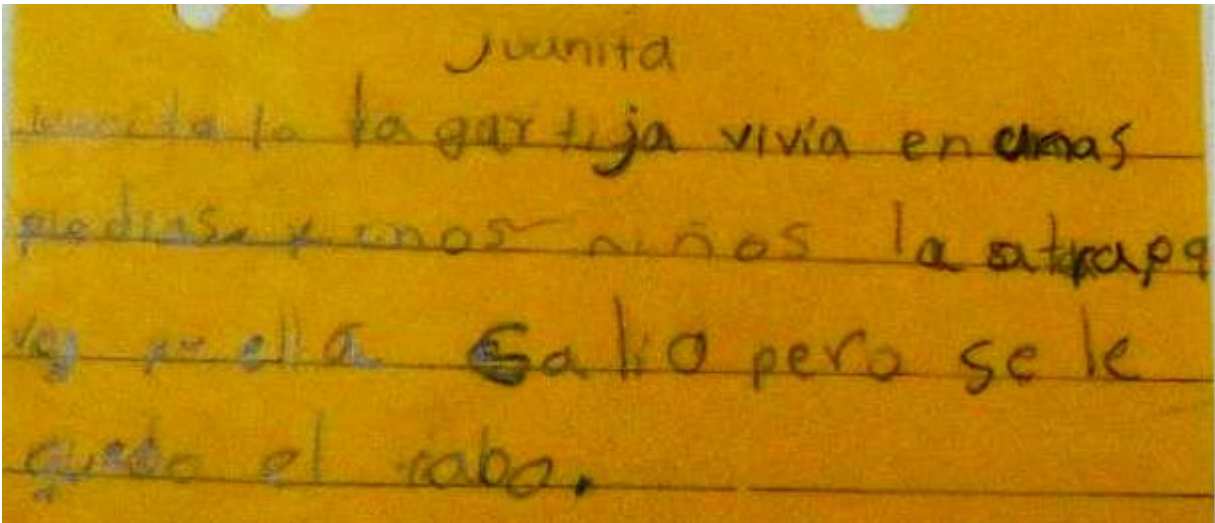 Juanita
Juanita la lagartija vivía en unas
piedras y unos niños la atrapa
ella salio pero se le
el rabo.